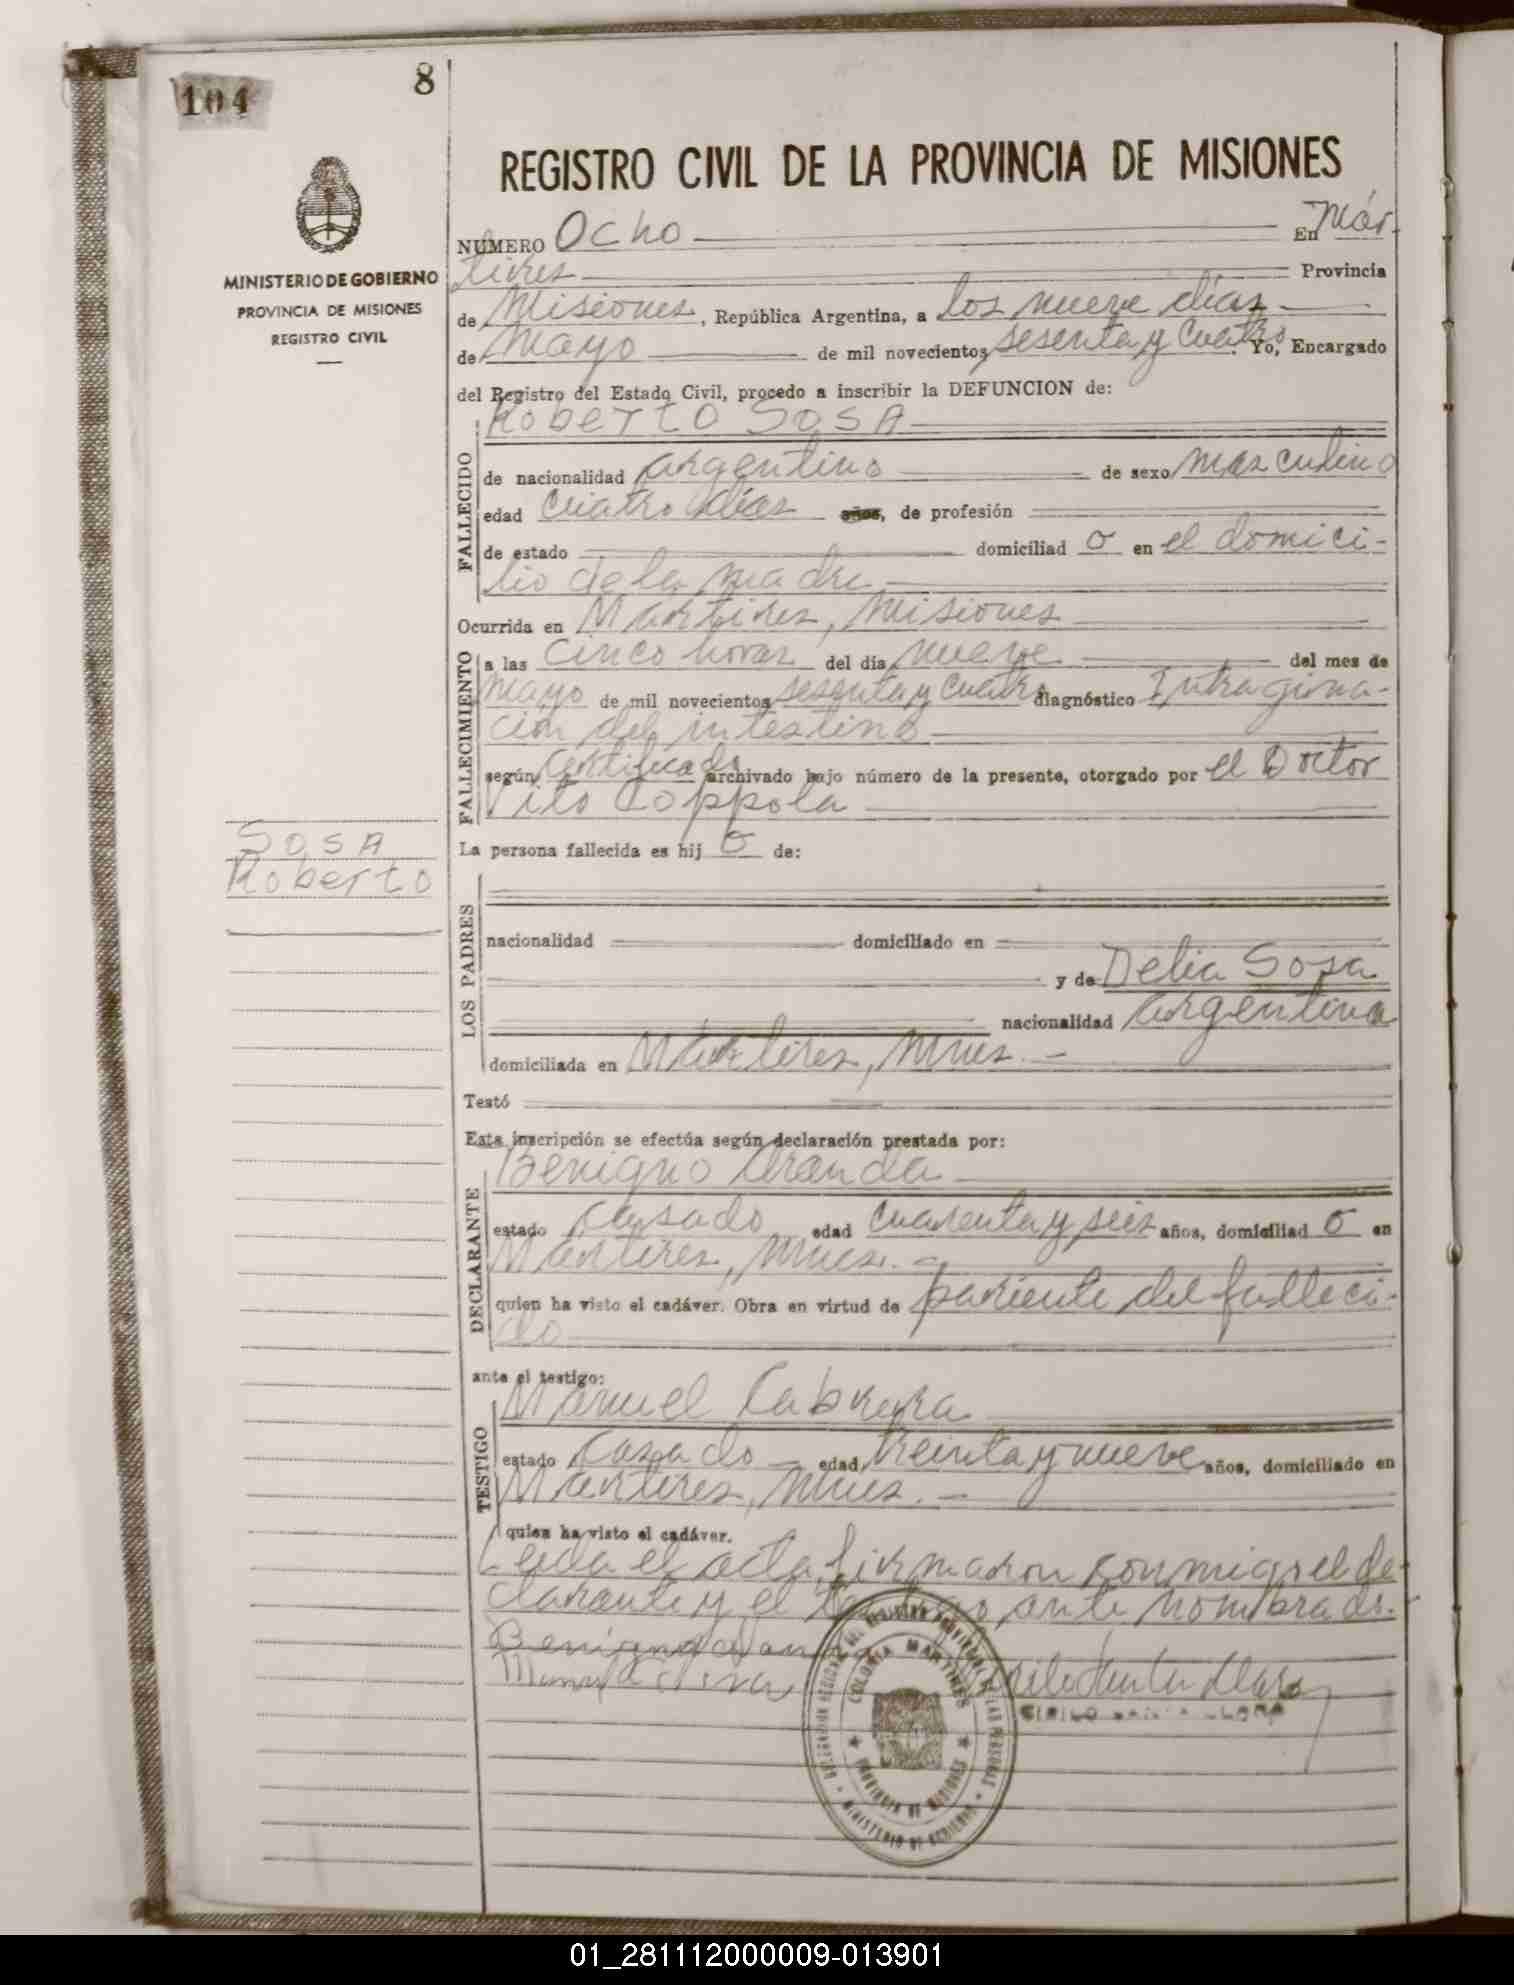 104
8
MINISTERIO DE GOBIERNO
PROVINCIA DE MISIONES
REGISTRO CIVIL
REGISTRO CIVIL DE LA PROVINCIA DE MISIONES
NUMERO Ocho En Már-
tires Provincia
de Misiones, República Argentina, a los nueve días
de Mayo de mil novecientos sesenta y cuatro. Yo, Encargado
del Registro del Estado Civil, procedo a inscribir la DEFUNCION de:
FALLECIDO
Roberto SOSA
de nacionalidad argentino de sexo masculino
edad cuatro días años, de profesión
de estado domiciliad o en el domici-
lio de la madre
Ocurrida en Mártires, Misiones
FALLECIMIENTO
a las cinco horas del día nueve del mes de
mayo de mil novecientos sesenta y cuatro diagnóstico Intragina-
ción del intestino
según Certificado archivado bajo número de la presente, otorgado por el Doctor
Vito Coppola
SOSA
Roberto
La persona fallecida es hij o de:
LOS PADRES
nacionalidad domiciliado en
y de Delia Sosa
nacionalidad argentina
domiciliada en Mártires, Mnes. -
Testó
Esta inscripción se efectúa según declaración prestada por:
DECLARANTE
Benigno Aranda
estado Casado edad cuarenta y seis años, domiciliad o en
Mártires, Mnes. -
quien ha visto el cadáver. Obra en virtud de pariente del falleci-
do
ante el testigo:
TESTIGO
Manuel Cabrera
estado Casado edad treinta y nueve años, domiciliado en
Mártires, Mnes. -
quien ha visto el cadáver.
Leida el acta, firmaron conmigo el de-
clarante y el testigo ante nombrado.-
Benigno
COLONIA MARTIRES
PROVINCIA DE MISIONES
MINISTERIO DE GOBIERNO
01_281112000009-013901